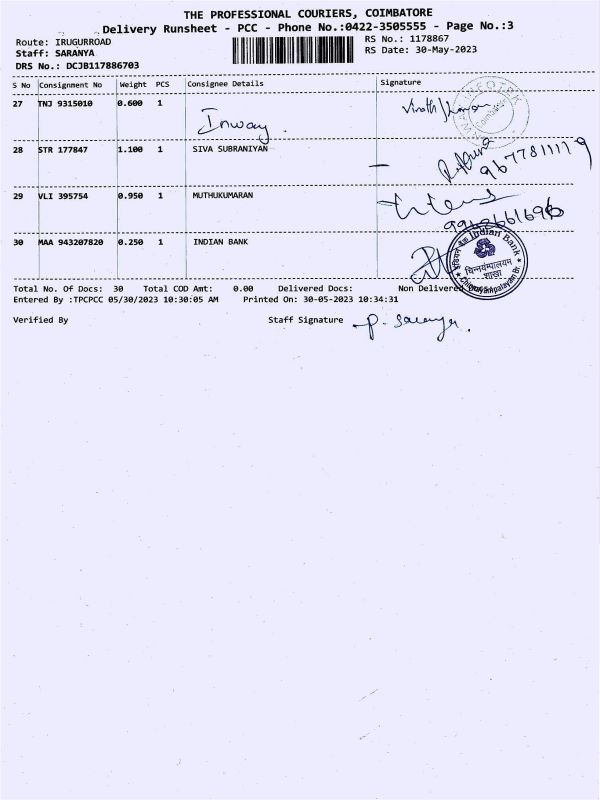 THE PROFESSIONAL COURIERS, COIMBATORE
Delivery Runsheet - PCC - Phone No.:0422-3505555 - Page No.:3
Route: IRUGURROAD
Staff: SARANYA
DRS No.: DCJB117886703
RS No.: 1178867
RS Date: 30-May-2023
S No Consignment No Weight PCS Consignee Details Signature
27 TNJ 9315010 0.600 1
Inway.
28 STR 177847 1.100 1 SIVA SUBRANIYAN
9677811119
29 VLI 395754 0.950 1 MUTHUKUMARAN
30 MAA 943207820 0.250 1 INDIAN BANK
Indian Bank
चिन्नयंम्पालयम
शाखा
Total No. Of Docs: 30 Total COD Amt: 0.00 Delivered Docs: Non Delivered
Entered By :TPCPCC 05/30/2023 10:30:05 AM Printed On: 30-05-2023 10:34:31
Verified By Staff Signature P. Saranya.